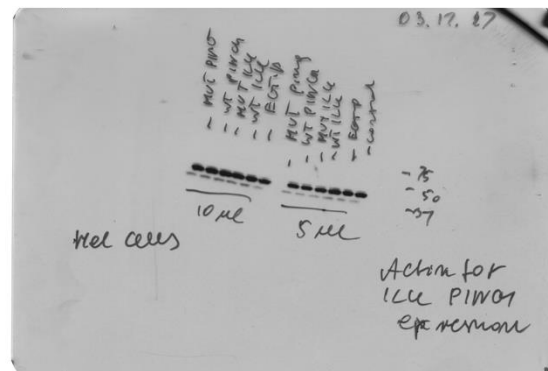 03.17.27
- MUT PINCH
- WT PINCH
- MUT ILK
- WT ILK
- EGFP
- MUT PINCH
- WT PINCH
- MUT ILK
- WT ILK
- EGFP
- control
- 75
- 50
- 37
10 µl
5 µl
Hel cells
Actin for
ILK PINCH
expression